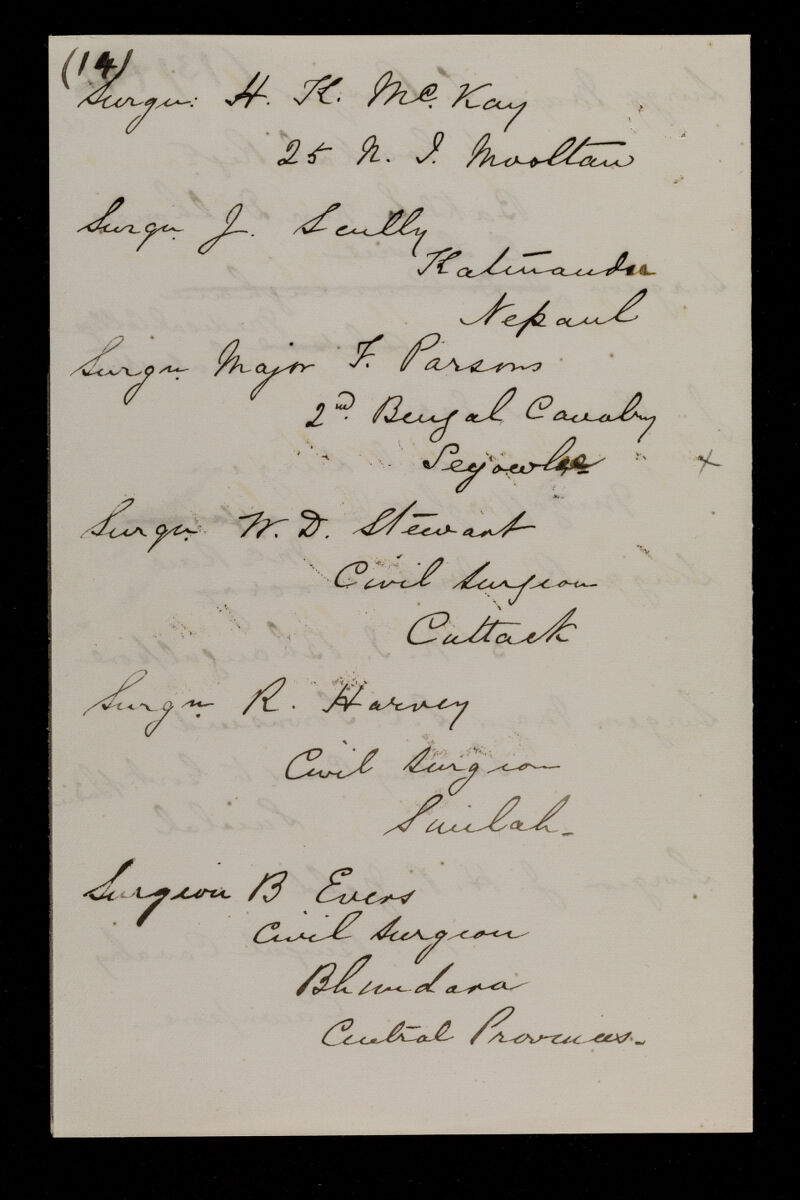 (14)
Surgn: H. K. McKay
25 N. I. Mooltan
Surgn. J. Scully
Katmandu
Nepaul
Surgn. Major F. Parsons
2nd. Bengal Cavalry
Segowlee
Surgn. W. D. Stewart
Civil Surgeon
Cuttack
Surgn R. Harvey
Civil Surgeon
Simlah -
Surgeon B Evers
Civil Surgeon
Bhundara
Central Provinces -